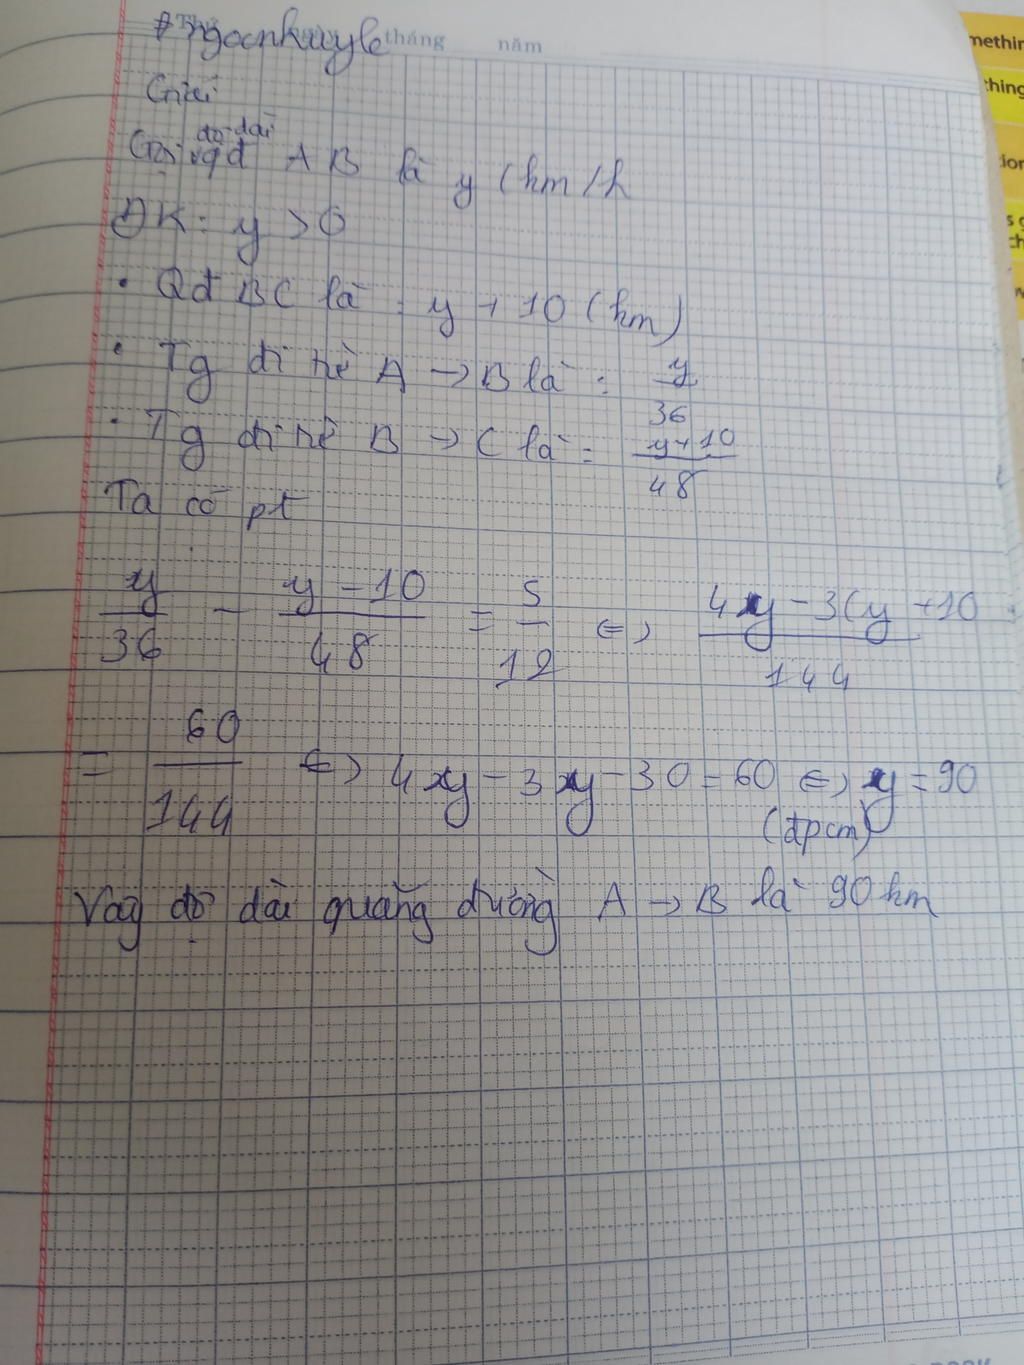 #ngocnhuyle
Thứ tháng năm
Giải
độ dài
Gọi qđ AB là y (km/h
ĐK: y > 0
• Qđ BC là: y + 10 (km)
• Tg đi hế A → B là: y/36
• Tg đi hế B → C là: y+10/48
Ta có pt
y/36 - y-10/48 = 5/12 <=> 4y-3(y+10/144
= 60/144 <=> 4xy-3xy-30=60 <=> y=90
(đpcm)
Vậy độ dài quãng đường A → B là 90 km
methin
thing
ion
s g
ch